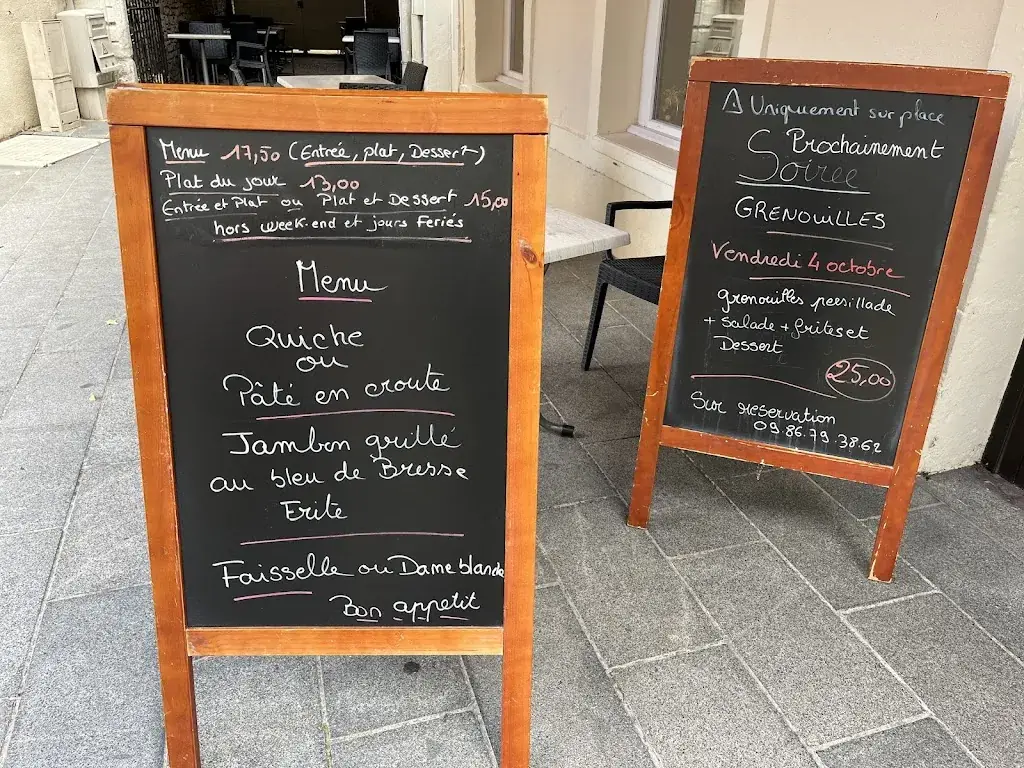 Menu 17,50 (Entrée, plat, Dessert)
Plat du jour 13,00
Entrée et Plat ou Plat et Dessert 15,00
hors week-end et jours Feriés
Menu
Quiche
ou
Pâté en croute
Jambon grillé
au bleu de Bresse
Frite
Faisselle ou Dame blanche
Bon appetit
⚠ Uniquement sur place
Prochainement
Soirée
GRENOUILLES
Vendredi 4 octobre
grenouilles persillade
+ Salade + frites et
Dessert
25,00
Sur reservation
09.86.79.38.62